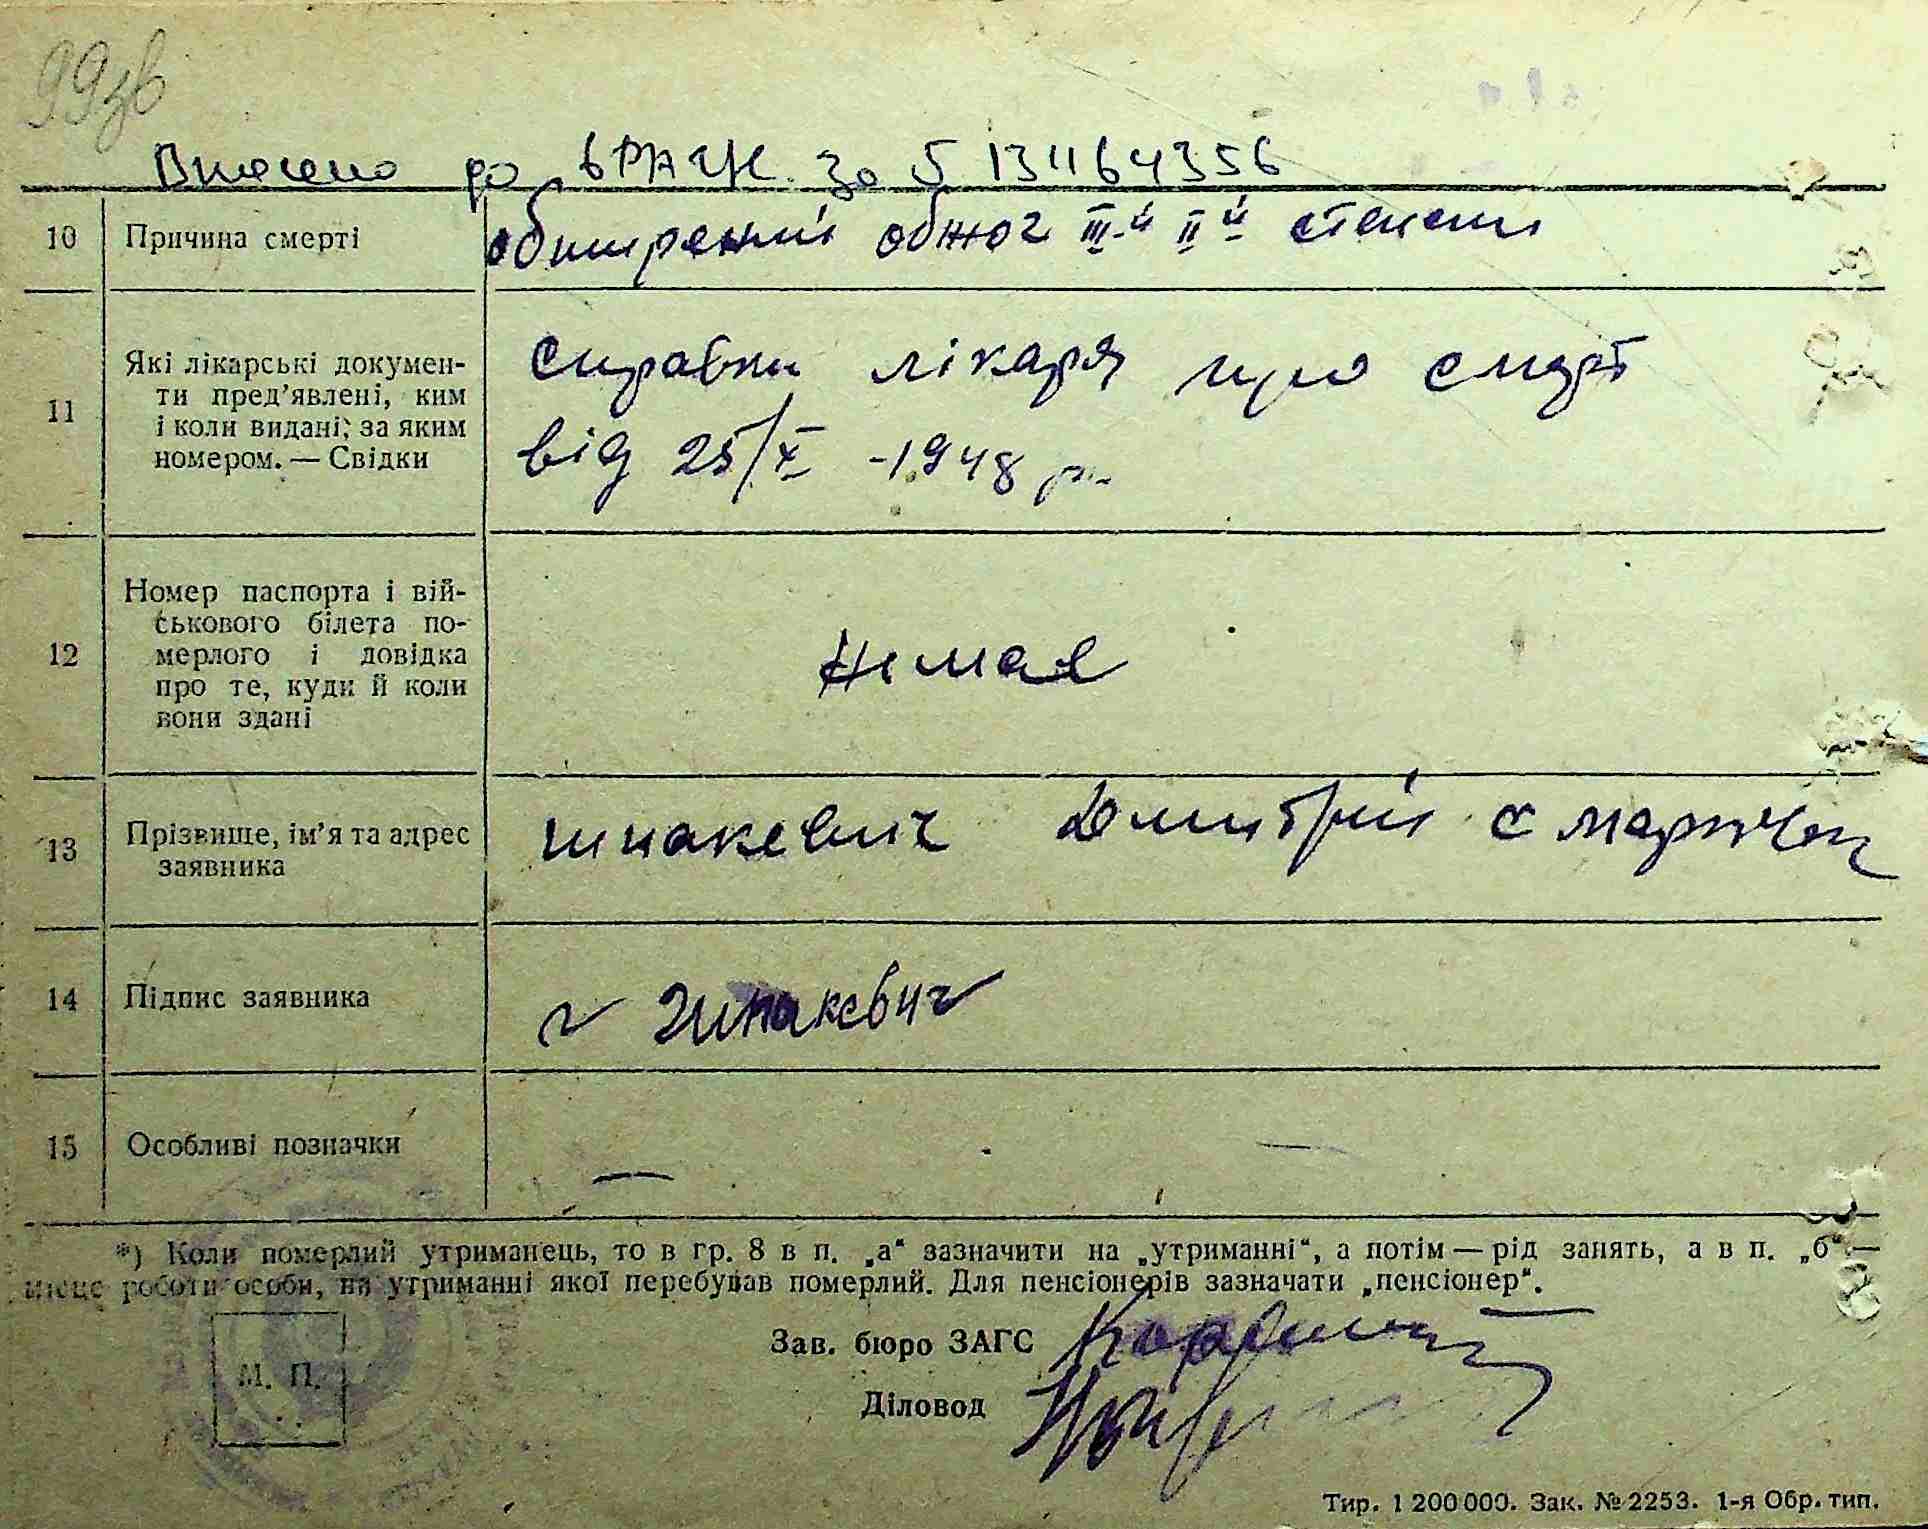 99зв
Внесено до ВРАЦС за № 131164356
10 Причина смерті обширений обжог III-й II й степени
11 Які лікарські докумен-
ти пред’явлені, ким
і коли видані; за яким
номером. — Свідки
справки лікаря про смерть
від 25/X -1948 р.
12 Номер паспорта і вій-
ськового білета по-
мерлого і довідка
про те, куди й коли
вони здані
Немає
13 Прізвище, ім’я та адрес
заявника
Шпакевич Дмитрій с
14 Підпис заявника Шпакевич
15 Особливі позначки —
*) Коли померлий утриманець, то в гр. 8 в п. „а“ зазначити на „утриманні“, а потім — рід занять, а в п. „б“ —
місце роботи особи, на утриманні якої перебував померлий. Для пенсіонерів зазначати „пенсіонер“.
Зав. бюро ЗАГС
Діловод
М. П.
Тир. 1 200 000. Зак. № 2253. 1-я Обр. тип.